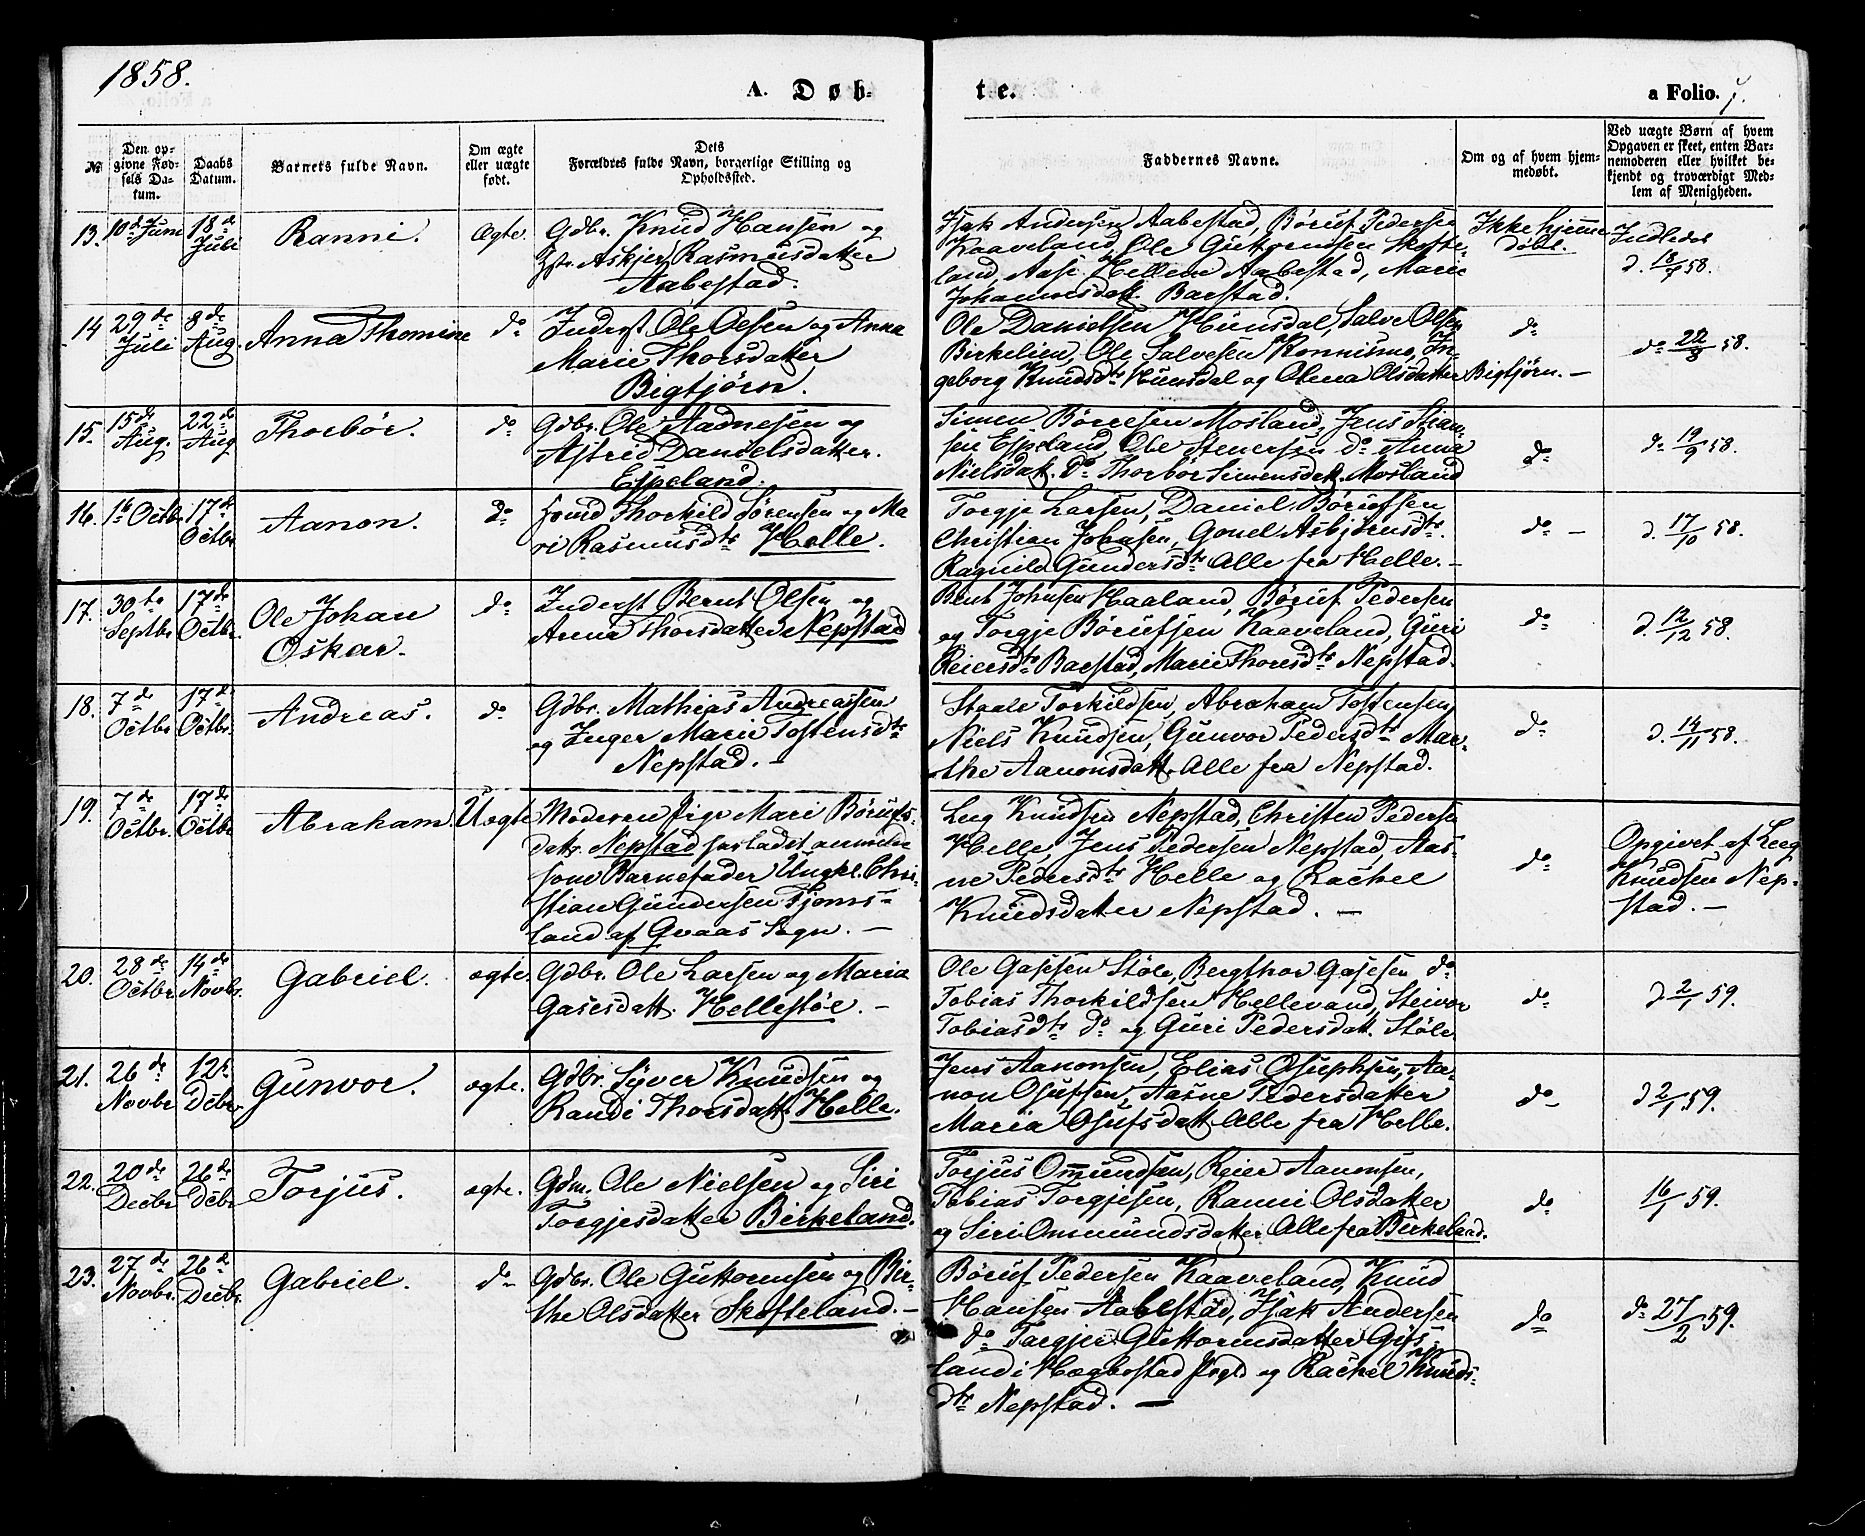 1858.
A. Døb-
te.
a Folio. 7.
№
Den op-
givne Fød-
sels Da-
tum.
Daabs
Datum.
Barnets fulde Navn.
Om ægte
eller uægte
født.
Dets
Forældres fulde Navn, borgerlige Stilling og
Opholdssted.
Faddernes Navne.
Om og af hvem hjem-
medøbt.
Ved uægte Børn af hvem
Opgaven er skeet, enten Bar-
nemoderen eller hvilket be-
kjendt og troværdigt Med-
lem af Menigheden.
13. 10de Juni 18de Juli Ranni. Ægte.
Gdbr. Knud Hansen og
Hstr. Askjer Rasmusdatter
Aabestad.
Isak Andersen Aabestad, Børuf Pedersen
Kaaveland, Ole Guttormsen Skofte-
land, Aase Hellene Aabestad, Marie
Johannesdatt. Barstad.
Ikke hjemme
døbt.
Indledet
d. 18/7 58.
14 29de Juli 8de Aug. Anna Thomine do
Inderst Ole Olsen og Anna
Marie Thorsdatter
Bigtjørn.
Ole Danielsen Hunsdal, Salve Olsen
Birkelien, Ole Salvesen Ronnismo, In-
geborg Knudsdtr Hunsdal og Olena Olsdatter Bigtjørn. —
do
do 22/8 58.
15. 15de Aug. 22de Aug Thorbør. do
Gdbr. Ole Aadnesen og
Astrid Danielsdatter.
Espeland.
Simen Børresen Mosland, Jens Stian-
sen Espeland, Ole Stenersen do Anna
Nielsdatt. do Thorbør Simensdatt. Mosland
do
do 19/9 58.
16. 1te Octbr. 17de Octbr Aanon. do
Huusmd Thorkild Sørensen og Ma
ri Rasmusdtr Helle.
Torgje Larsen, Daniel Børufsen
Christian Johnsen, Gonel Asbjørnsdtr.
Ragnild Gundersdtr Alle fra Helle. —
do —
d. 17/10 58.
17. 30te Septbr 17de Octbr. Ole Johan
Oskar. do
Inderst Bernt Olsen og
Anna Thorsdatter Nepstad
Bent Johnsen Haaland, Børuf Pedersen
og Torgje Børufsen Kaaveland, Guri
Reiersdtr Barstad, Marie Thorsdtr Nepstad.
do
d. 12/12 58.
18. 7de Octbr 17de Octbr. Andreas. do
Gdbr. Mathias Andreassen
og Inger Marie Tostensdtr
Nepstad. —
Staale Torkildsen, Abraham Tostensen,
Niels Knudsen, Gunvor Pedersdtr Mar-
the Aanonsdatt. Alle fra Nepstad.
do
d. 14/11 58.
19. 7de Octbr. 17de Octbr Abraham. Uægte
Moderen Pige Mari Børufs-
datr. Nepstad har ladet anmelde
som Barnefader Ungkl. Chri-
stian Gundersen Fjoms-
land af Qvaas Sogn. —
Leeg Knudsen Nepstad, Christen Pedersen
Helle, Jens Pedersen Nepstad, Aas-
ne Pedersdtr Helle og Rachel
Knudsdatter Nepstad. —
do
Opgivet af Leeg
Knudsen Nep-
stad. —
20. 28de Octbr. 14de Novbr. Gabriel. ægte.
Gdbr. Ole Larsen og Maria
Gasesdatt. Hellestøl. —
Ole Gasesen Støle, Bergthor Gasesen do
Tobias Thorkildsen Hellevand, Steivor
Tobiasdtr do og Guri Pedersdatt. Støle.
do
d. 2/1 59.
21. 26de Novbr 12te Debr. Gunvor. ægte.
Gdbr. Syver Knudsen og
Randi Thorsdatt. Helle.
Jens Aanonsen, Elias Osuphsen, Aa-
non Osufsen, Aasne Pedersdatter
Maria Osufsdatt. Alle fra Helle.
do —
d 2/1 59.
22. 20de Decbr 26de Debr Torjus. ægte.
Gdm. Ole Nielsen og Siri
Torgjesdatter Birkeland.
Torjus Ommundsen, Reier Aanonsen,
Tobias Torgjesen, Ranni Olsdatter
og Siri Ommundsdatter Alle fra Birkeland.
do
16/1 59.
23. 27de Novbr. 26de Decbr. Gabriel. do
Gdbr. Ole Guttormsen og Bir-
the Olsdatter Skofteland. —
Børuf Pedersen Kaaveland, Knud
Hansen Aabestad, Isak Andersen
do Torgjer Guttormsdatter Gys-
land i Hægbostad Prgld og Rachel Knuds-
dtr Nepstad. —
do
do 27/2 59.